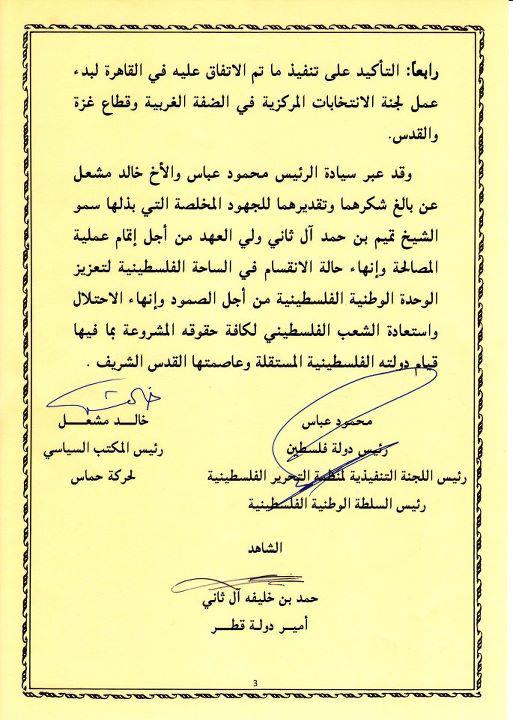 رابعاً: التأكيد على تنفيذ ما تم الاتفاق عليه في القاهرة لبدء
عمل لجنة الانتخابات المركزية في الضفة الغربية وقطاع غزة
والقدس.
وقد عبر سيادة الرئيس محمود عباس والأخ خالد مشعل
عن بالغ شكرهما وتقديرهما للجهود المخلصة التي بذلها سمو
الشيخ تميم بن حمد آل ثاني ولي العهد من أجل إتمام عملية
المصالحة وإنهاء حالة الانقسام في الساحة الفلسطينية لتعزيز
الوحدة الوطنية الفلسطينية من أجل الصمود وإنهاء الاحتلال
واستعادة الشعب الفلسطيني لكافة حقوقه المشروعة بما فيها
قيام دولته الفلسطينية المستقلة وعاصمتها القدس الشريف .
محمود عباس
رئيس دولة فلسطين
رئيس اللجنة التنفيذية لمنظمة التحرير الفلسطينية
رئيس السلطة الوطنية الفلسطينية
خالد مشعل
رئيس المكتب السياسي
لحركة حماس
الشاهد
حمد بن خليفه آل ثاني
أمير دولة قطر
3